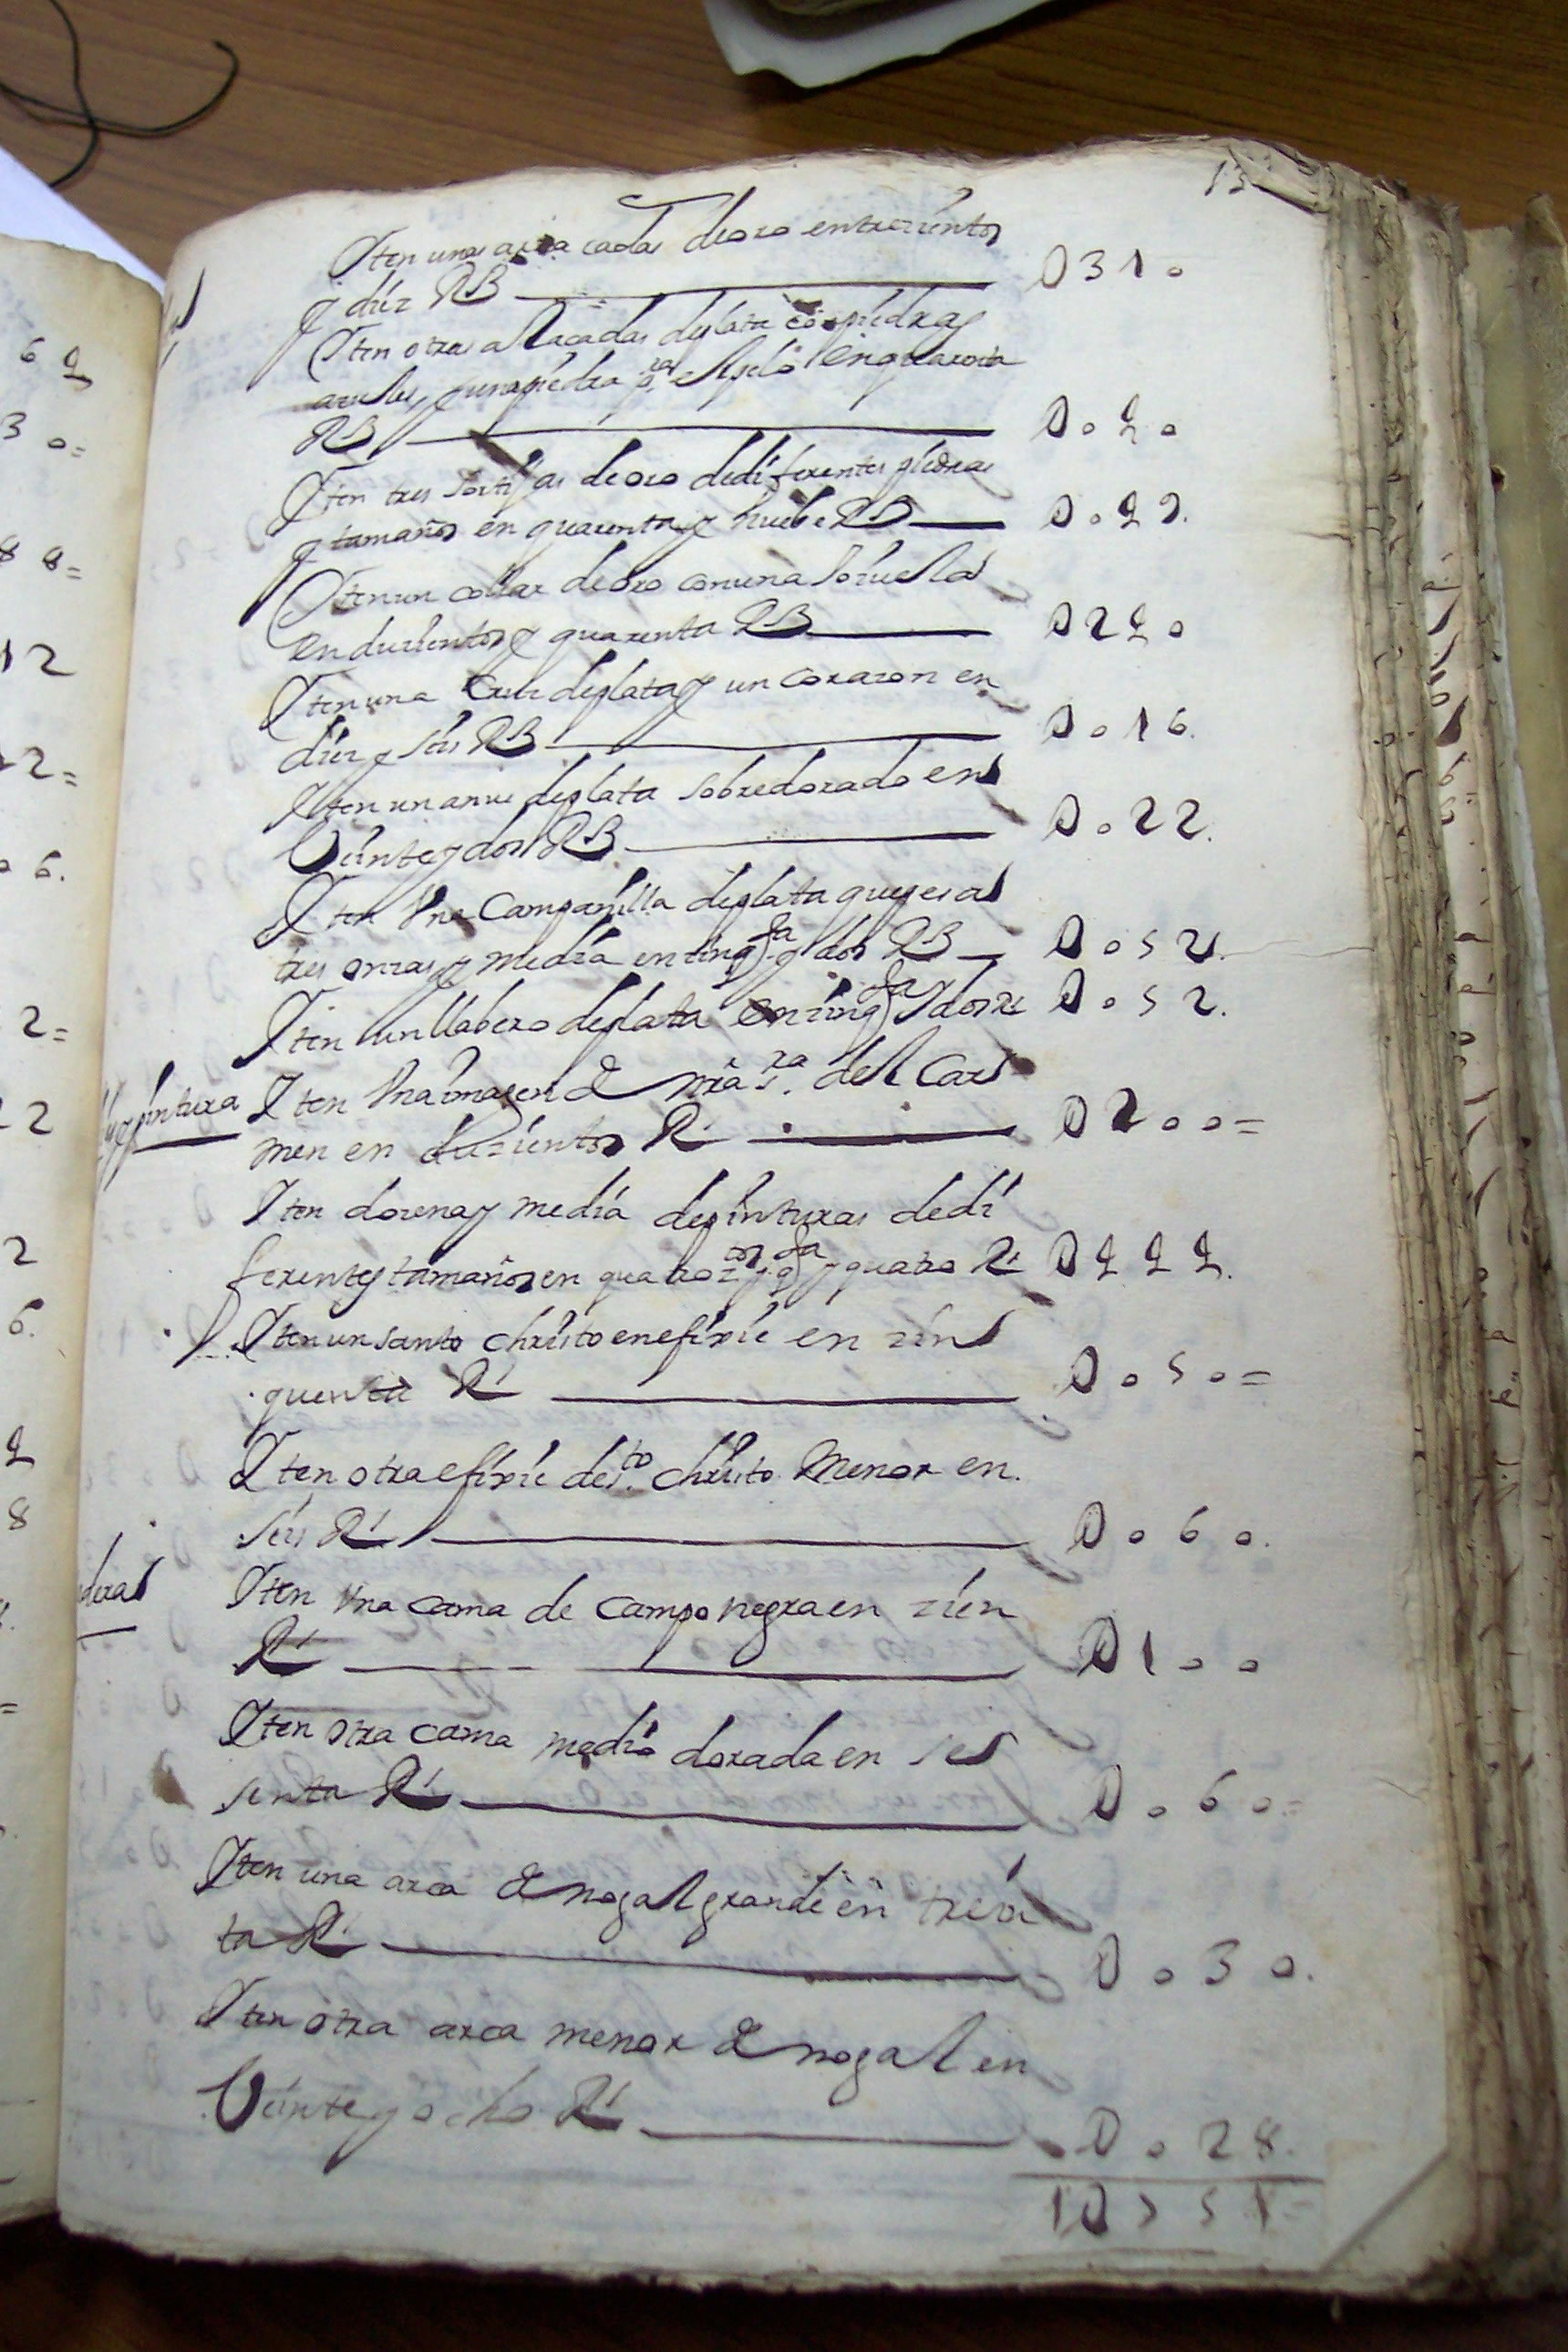 13
Iten unas arracadas de oro en trezientos D310
y diez RB
Iten otras arracadas de plata cō piedras
azules, y una piedra pra el pelo en quarenta
RB D040
Iten tres sortijas de oro de diferentes piedras
y tamaños en quarenta y nuebe RB D049.
Iten un collar de oro con una Joiuela
en duzientos y quarenta RB D240
Iten una Cruz de plata y un corazon en
diez y seis RB D016.
Iten un anus de plata sobredorado en
Veinte y dos RB D.022.
Iten Vna Campanilla de plata que pesa
tres onzas y media en zinqta y dos RB D052.
Iten un llabero de plata en zinqta y dos Rs D052.
y pintura Iten Vna imagen de nra sra. del Car
men en duzientos Rs D200=
Iten dozena y media de pinturas de di
ferentes tamaños en quatrozos y qta y quatro Rs D444.
Iten un santo christo en efixie en zin
quenta Rs D050=
Iten otra efixie de sto. christo menor en
seis Rs D060.
deras Iten Vna cama de campo negra en zien
Rs D100
Iten otra cama media dorada en ses
senta Rs D060=
Iten una arca de nogal grande en trein
ta Rs D030.
Iten otra arca menor de nogal en
Veinte y ocho Rs D028.